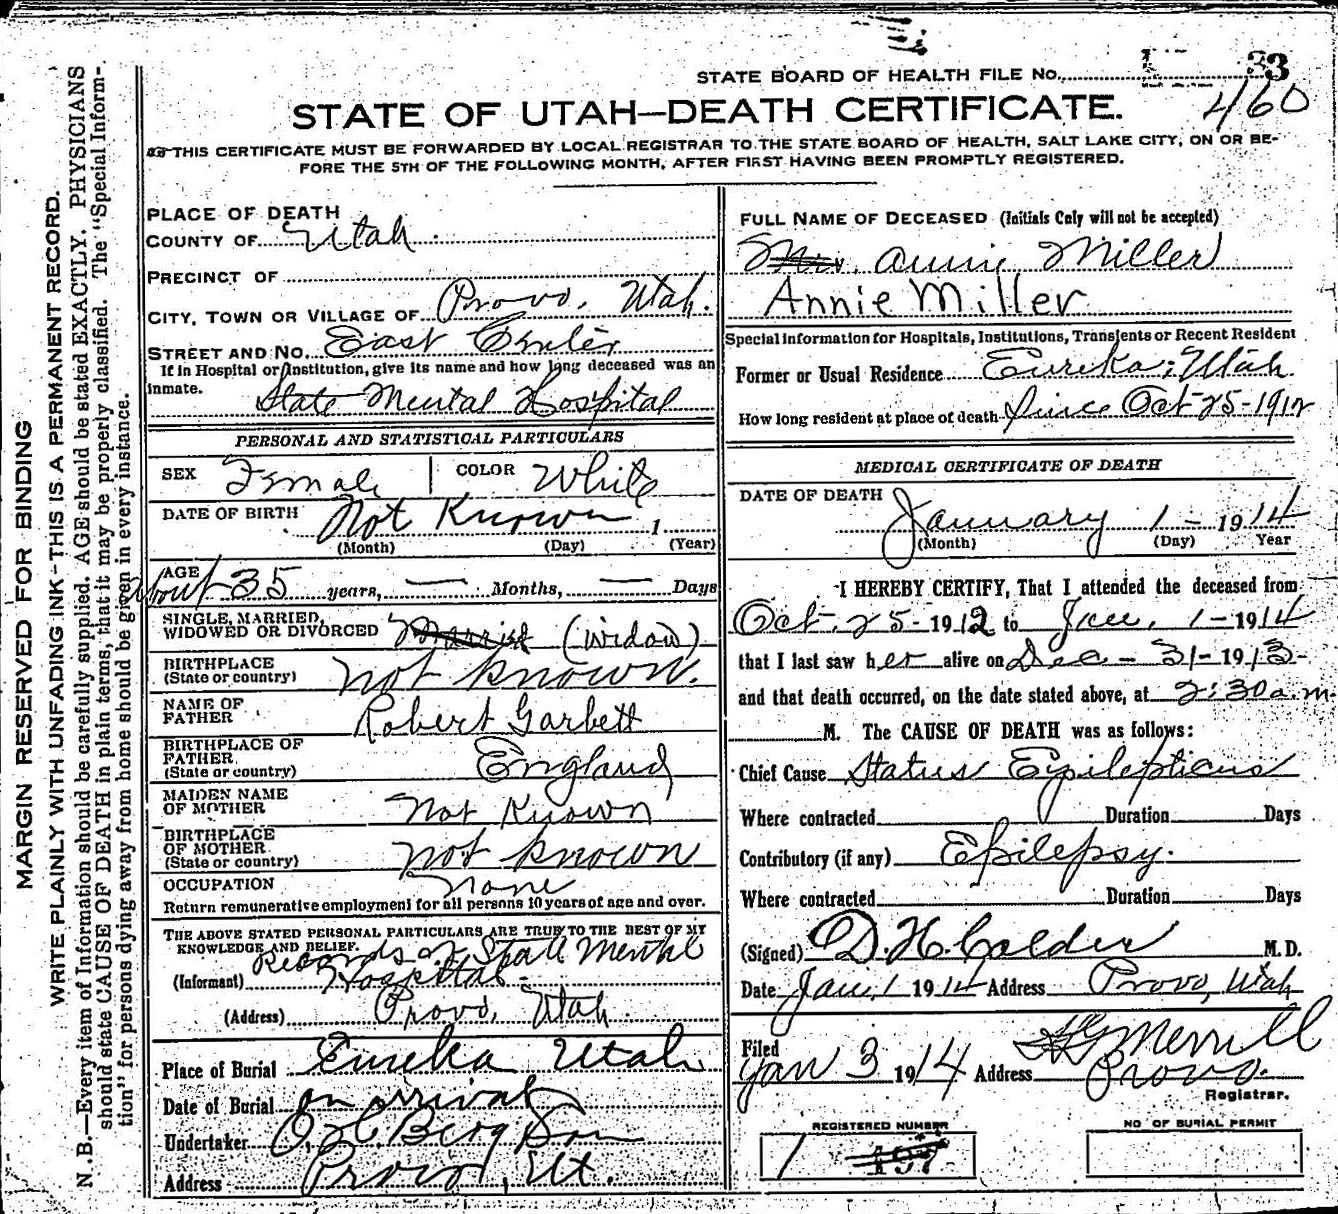 STATE BOARD OF HEALTH FILE No. 33
460
STATE OF UTAH—DEATH CERTIFICATE.
THIS CERTIFICATE MUST BE FORWARDED BY LOCAL REGISTRAR TO THE STATE BOARD OF HEALTH, SALT LAKE CITY, ON OR BE-
FORE THE 5TH OF THE FOLLOWING MONTH, AFTER FIRST HAVING BEEN PROMPTLY REGISTERED.
MARGIN RESERVED FOR BINDING
WRITE PLAINLY WITH UNFADING INK-THIS IS A PERMANENT RECORD.
N. B.—Every item of Information should be carefully supplied. AGE should be stated EXACTLY. PHYSICIANS
should state CAUSE OF DEATH in plain terms, that it may be properly classified. The "Special Inform-
tion" for persons dying away from home should be given in every instance.
PLACE OF DEATH
COUNTY OF Utah
PRECINCT OF
CITY, TOWN OR VILLAGE OF Provo, Utah.
STREET AND No. East Center
If in Hospital or Institution, give its name and how long deceased was an
inmate.
State Mental Hospital
PERSONAL AND STATISTICAL PARTICULARS
SEX Female COLOR White
DATE OF BIRTH Not Known 1
(Month) (Day) (Year)
AGE
About 35 years, — Months, — Days
SINGLE, MARRIED,
WIDOWED OR DIVORCED Married (Widow)
BIRTHPLACE
(State or country) not known.
NAME OF
FATHER Robert Garbett
BIRTHPLACE OF
FATHER
(State or country) England
MAIDEN NAME
OF MOTHER Not Known
BIRTHPLACE
OF MOTHER
(State or country) not known
OCCUPATION none
Return remunerative employment for all persons 10 years of age and over.
THE ABOVE STATED PERSONAL PARTICULARS ARE TRUE TO THE BEST OF MY
KNOWLEDGE AND BELIEF.
Records of State Mental
(Informant) Hospital
(Address) Provo, Utah.
Place of Burial Eureka Utah
Date of Burial on arrival
Undertaker O. H. Berg & Son
Address Provo, Ut.
FULL NAME OF DECEASED (Initials Only will not be accepted)
Mrs. Annie Miller
Annie Miller
Special information for Hospitals, Institutions, Transients or Recent Resident
Former or Usual Residence Eureka, Utah
How long resident at place of death Since Oct-25-1912
MEDICAL CERTIFICATE OF DEATH
DATE OF DEATH
January 1- 1914
(Month) (Day) Year
I HEREBY CERTIFY, That I attended the deceased from
Oct. 25- 1912 to Jan. 1- 1914
that I last saw her alive on Dec- 31- 1913-
and that death occurred, on the date stated above, at 2:30 a.m.
M. The CAUSE OF DEATH was as follows:
Chief Cause Status Epilepticus
Where contracted Duration Days
Contributory (if any) Epilepsy.
Where contracted Duration Days
(Signed) D. H. Calder M. D.
Date Jan. 1 1914 Address Provo, Utah
Filed
Jan 3 1914 Address Provo.
H G Merrill
Registrar.
REGISTERED NUMBER
1 197
NO OF BURIAL PERMIT